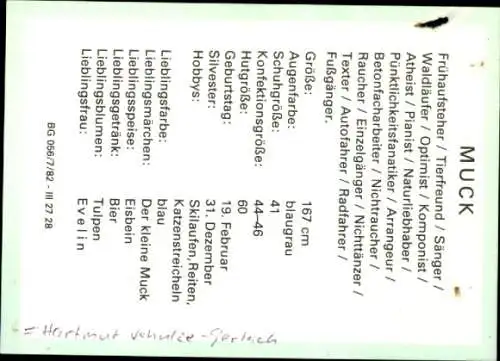 MUCK
Frühaufsteher / Tierfreund / Sänger /
Waldläufer / Optimist / Komponist /
Atheist / Pianist / Naturliebhaber /
Pünktlichkeitsfanatiker / Arrangeur /
Betonfacharbeiter / Nichtraucher /
Raucher / Einzelgänger / Nichttänzer /
Texter / Autofahrer / Radfahrer /
Fußgänger.
Größe: 167 cm
Augenfarbe: blaugrau
Schuhgröße: 41
Konfektionsgröße: 44–46
Hutgröße: 60
Geburtstag: 19. Februar
Silvester: 31. Dezember
Hobbys: Skilaufen, Reiten,
Katzenstreicheln
Lieblingsfarbe: blau
Lieblingsmärchen: Der kleine Muck
Lieblingsspeise: Eisbein
Lieblingsgetränk: Bier
Lieblingsblumen: Tulpen
Lieblingsfrau: Evelin
BG 056/7/82 - III 27 28
= Hartmut Schulze-Gerlach